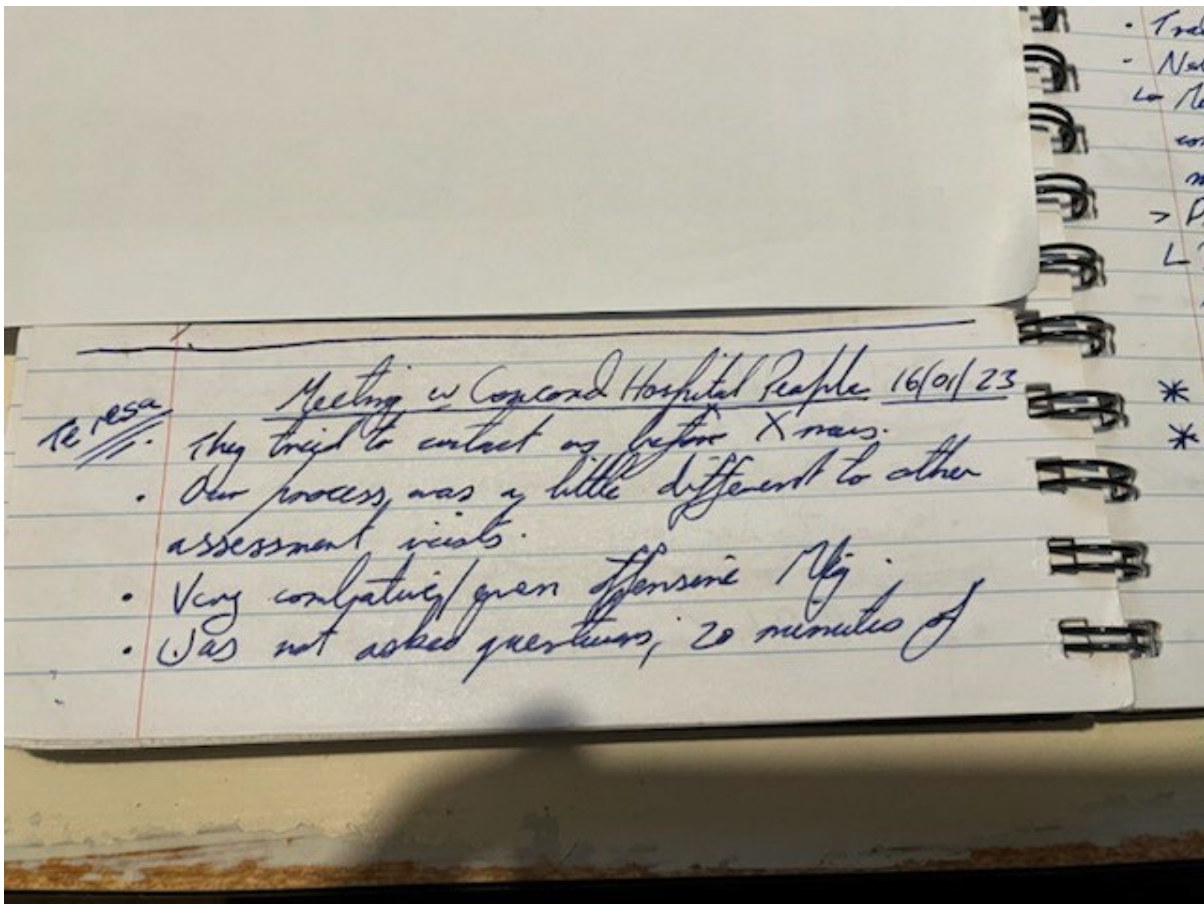 Meeting w Concord Hospital People 16/01/23
Teresa
· They tried to contact us before Xmas.
· Our process was a little different to other
assessment visits.
· Very combative/even offensive Mtg.
· Was not asked questions, 20 minutes of
·
-
>
*
*